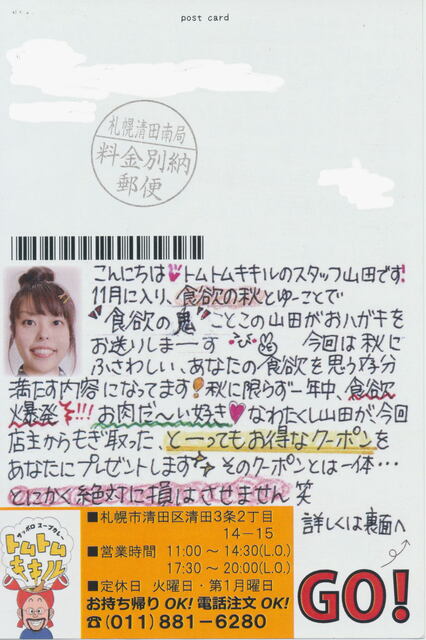 post card
札幌清田南局
料金別納
郵便
こんにちは♥トムトムキキルのスタッフ山田です!
11月に入り、食欲の秋とゆーことで
"食欲の鬼"ことこの山田がおハガキを
お送りしまーす 今回は秋に
ふさわしい、あなたの食欲を思う存分
満たす内容になってます!秋に限らず一年中、食欲
爆発!!!お肉だ〜い好き♥なわたくし山田が、今回
店主からもぎ取った、とーってもお得なクーポンを
あなたにプレゼントします そのクーポンとは一体…
とにかく絶対に損はさせません 笑
詳しくは裏面へ
GO!
サッポロ スープカレー
トムトム
キキル
■札幌市清田区清田3条2丁目
14-15
■営業時間 11:00〜14:30(L.O.)
17:30〜20:00(L.O.)
■定休日 火曜日・第1月曜日
お持ち帰りOK!電話注文OK!
☎(011)881-6280